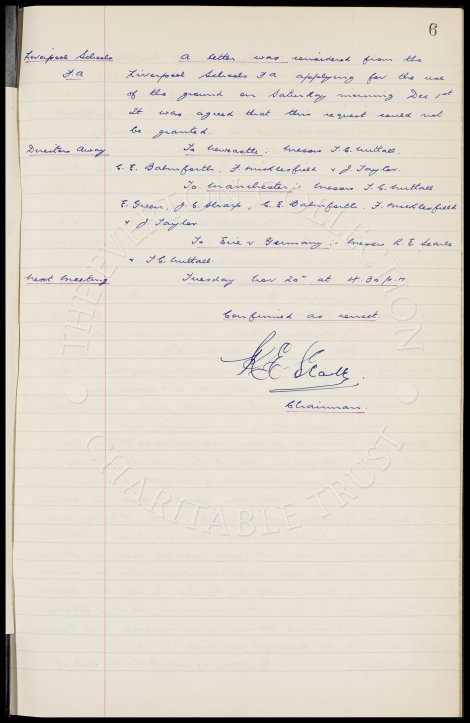 6
Liverpool Schools A letter was considered from the
F.A Liverpool Schools F.A applying for the use
of the ground on Saturday morning Dec 1st.
It was agreed that this request could not
be granted.
Directors Away To Newcastle:- Messrs T.C. Nuttall,
C.E. Balmforth, F. Micklesfield & J. Taylor.
To Manchester:- Messrs T.C. Nuttall
E. Green, J.C. Sharp, C.E. Balmforth, F. Micklesfield
& J. Taylor
To Eire & Germany:- Messrs R.E. Searle
& T.C. Nuttall.
Next Meeting Tuesday Nov 20 at 4.30 p.m.
Confirmed as correct
Chairman.
THE EVERTON COLLECTION
CHARITABLE TRUST